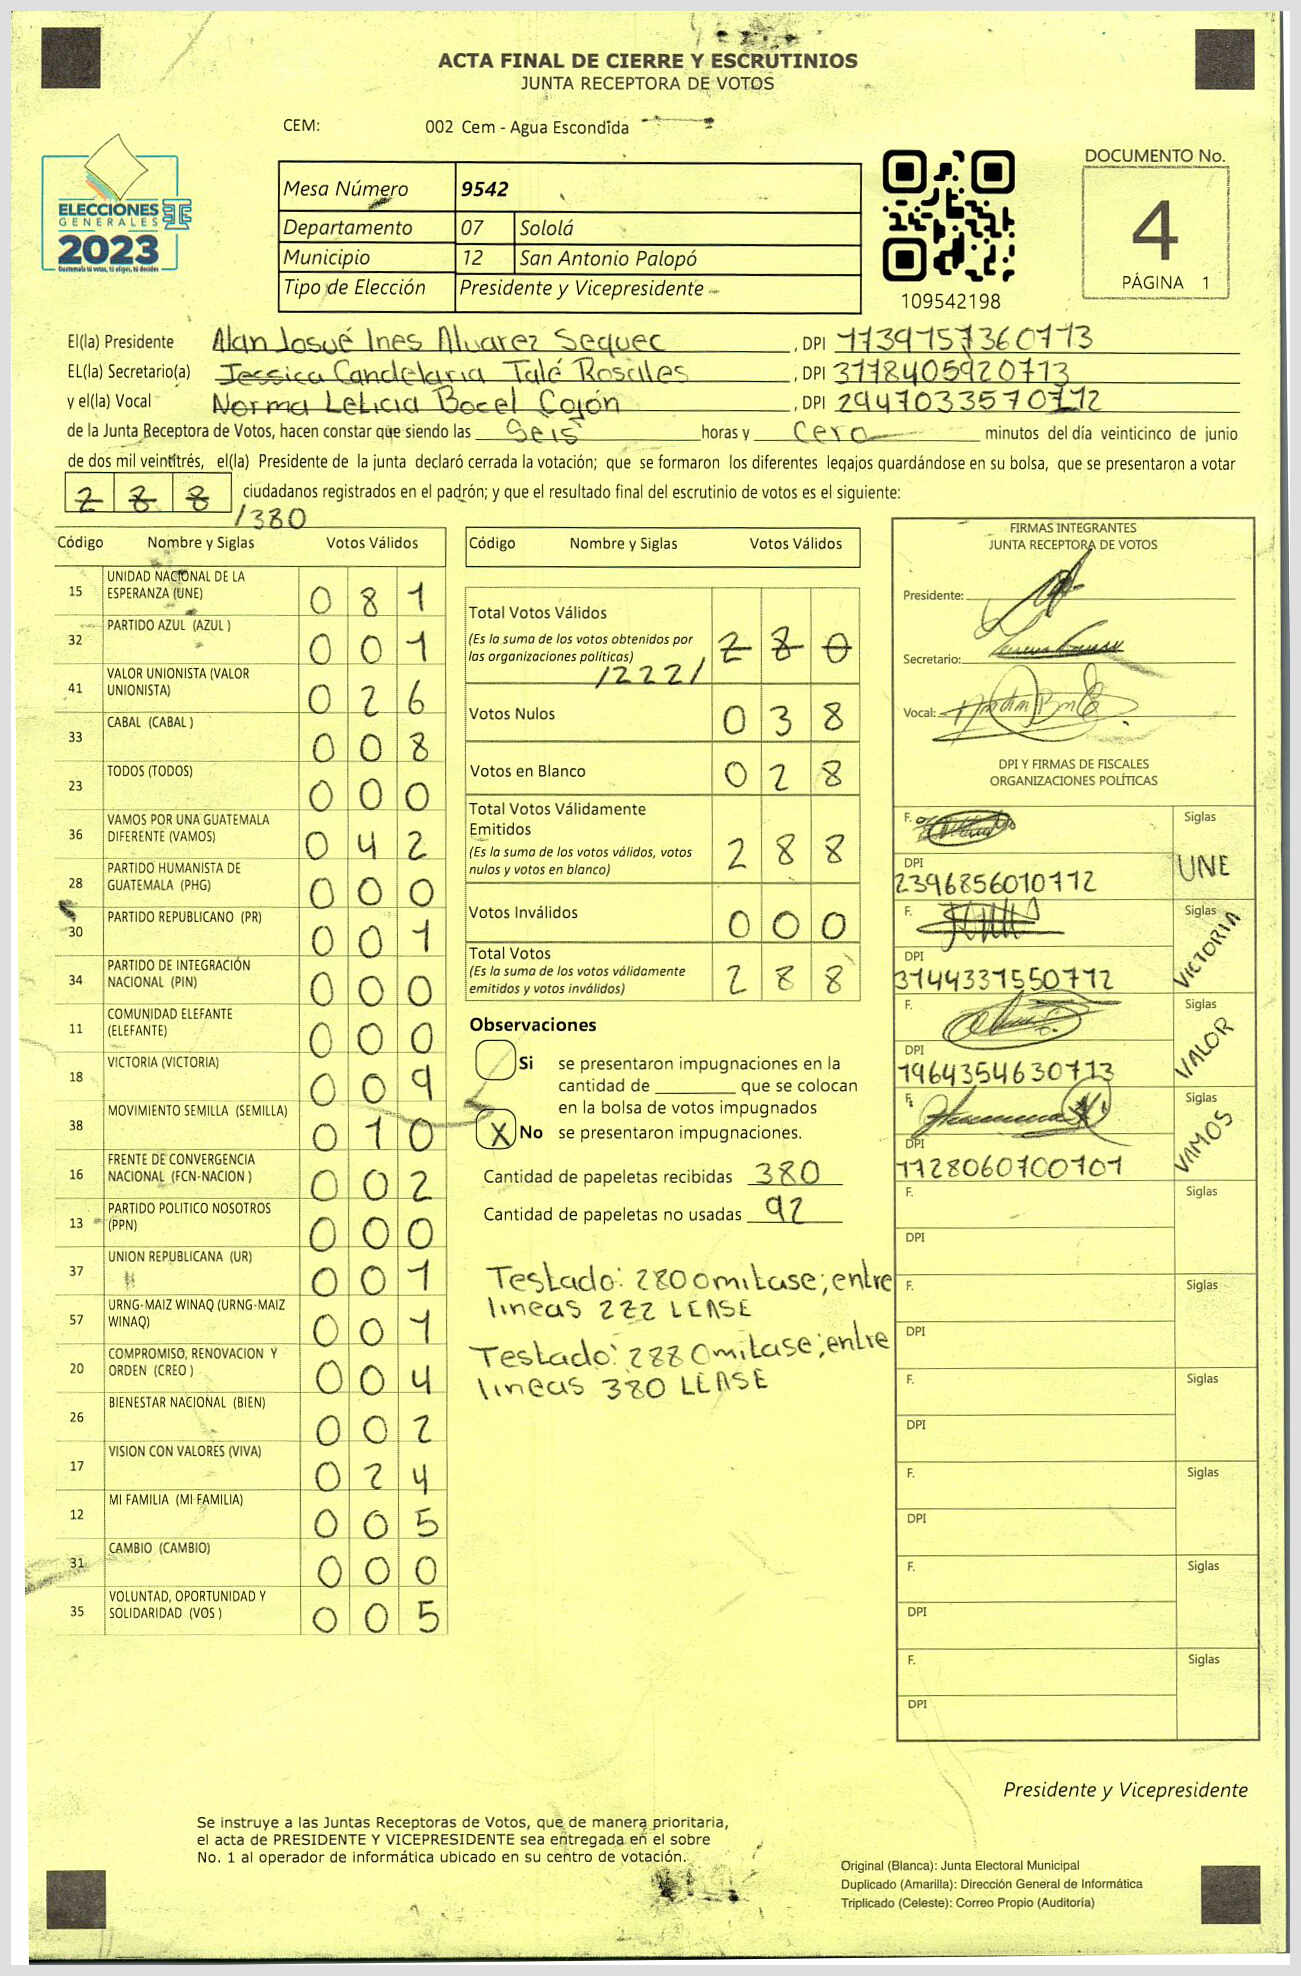 ACTA FINAL DE CIERRE Y ESCRUTINIOS
JUNTA RECEPTORA DE VOTOS
CEM: 002 Cem - Agua Escondida
ELECCIONES
GENERALES
2023
Guatemala tú votas, tú eliges, tú decides
Mesa Número 9542
Departamento 07 Sololá
Municipio 12 San Antonio Palopó
Tipo de Elección Presidente y Vicepresidente
109542198
DOCUMENTO No.
4
PÁGINA 1
El(la) Presidente Alan Josué Ines Alvarez Sequec, DPI 1739157360713
EL(la) Secretario(a) Jessica Candelaria Talé Rosales, DPI 3178405920713
y el(la) Vocal Norma Leticia Bocel Cojón, DPI 2947033570712
de la Junta Receptora de Votos, hacen constar que siendo las Seis horas y Cero minutos del día veinticinco de junio
de dos mil veintitrés, el(la) Presidente de la junta declaró cerrada la votación; que se formaron los diferentes legajos quardándose en su bolsa, que se presentaron a votar
288 ciudadanos registrados en el padrón; y que el resultado final del escrutinio de votos es el siguiente:
/380
Código Nombre y Siglas Votos Válidos
15 UNIDAD NACIONAL DE LA ESPERANZA (UNE) 0 8 1
32 PARTIDO AZUL (AZUL ) 0 0 1
41 VALOR UNIONISTA (VALOR UNIONISTA) 0 2 6
33 CABAL (CABAL ) 0 0 8
23 TODOS (TODOS) 0 0 0
36 VAMOS POR UNA GUATEMALA DIFERENTE (VAMOS) 0 4 2
28 PARTIDO HUMANISTA DE GUATEMALA (PHG) 0 0 0
30 PARTIDO REPUBLICANO (PR) 0 0 1
34 PARTIDO DE INTEGRACIÓN NACIONAL (PIN) 0 0 0
11 COMUNIDAD ELEFANTE (ELEFANTE) 0 0 0
18 VICTORIA (VICTORIA) 0 0 9
38 MOVIMIENTO SEMILLA (SEMILLA) 0 1 0
16 FRENTE DE CONVERGENCIA NACIONAL (FCN-NACION ) 0 0 2
13 PARTIDO POLITICO NOSOTROS (PPN) 0 0 0
37 UNION REPUBLICANA (UR) 0 0 1
57 URNG-MAIZ WINAQ (URNG-MAIZ WINAQ) 0 0 1
20 COMPROMISO, RENOVACION Y ORDEN (CREO ) 0 0 4
26 BIENESTAR NACIONAL (BIEN) 0 0 2
17 VISION CON VALORES (VIVA) 0 2 4
12 MI FAMILIA (MI FAMILIA) 0 0 5
31 CAMBIO (CAMBIO) 0 0 0
35 VOLUNTAD, OPORTUNIDAD Y SOLIDARIDAD (VOS ) 0 0 5
Código Nombre y Siglas Votos Válidos
Total Votos Válidos 2 8 0
(Es la suma de los votos obtenidos por
las organizaciones políticas)
/222/
Votos Nulos 0 3 8
Votos en Blanco 0 2 8
Total Votos Válidamente
Emitidos 2 8 8
(Es la suma de los votos válidos, votos
nulos y votos en blanco)
Votos Inválidos 0 0 0
Total Votos 2 8 8
(Es la suma de los votos válidamente
emitidos y votos inválidos)
Observaciones
Si se presentaron impugnaciones en la
cantidad de ________ que se colocan
en la bolsa de votos impugnados
X No se presentaron impugnaciones.
Cantidad de papeletas recibidas 380
Cantidad de papeletas no usadas 92
Testado: 280 omitase; entre
lineas 222 LEASE
Testado: 288 Omitase; entre
lineas 380 LEASE
FIRMAS INTEGRANTES
JUNTA RECEPTORA DE VOTOS
Presidente:
Secretario:
Vocal:
DPI Y FIRMAS DE FISCALES
ORGANIZACIONES POLÍTICAS
F. Siglas
DPI UNE
2396856010712
F. Siglas
DPI VICTORIA
3144331550712
F. Siglas
DPI VALOR
1964354630713
F. Siglas
DPI VAMOS
1728060100101
F. Siglas
DPI
F. Siglas
DPI
F. Siglas
DPI
F. Siglas
DPI
F. Siglas
DPI
F. Siglas
DPI
Presidente y Vicepresidente
Se instruye a las Juntas Receptoras de Votos, que de manera prioritaria,
el acta de PRESIDENTE Y VICEPRESIDENTE sea entregada en el sobre
No. 1 al operador de informática ubicado en su centro de votación.
Original (Blanca): Junta Electoral Municipal
Duplicado (Amarilla): Dirección General de Informática
Triplicado (Celeste): Correo Propio (Auditoría)